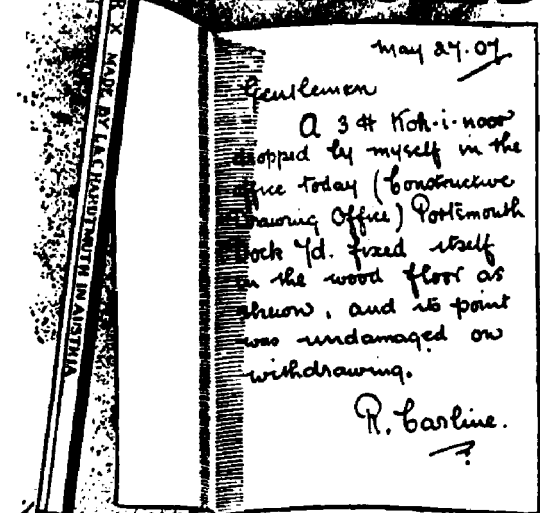 MADE BY L.& C.HARDTMUTH IN AUSTRIA
May 27.07
Gentlemen
A 3 H Koh-i-noor
dropped by myself in the
office today (Constructive
Drawing Office) Portsmouth
Dock Yd. fixed itself
in the wood floor as
shewn, and its point
was undamaged on
withdrawing.
R. Carline.